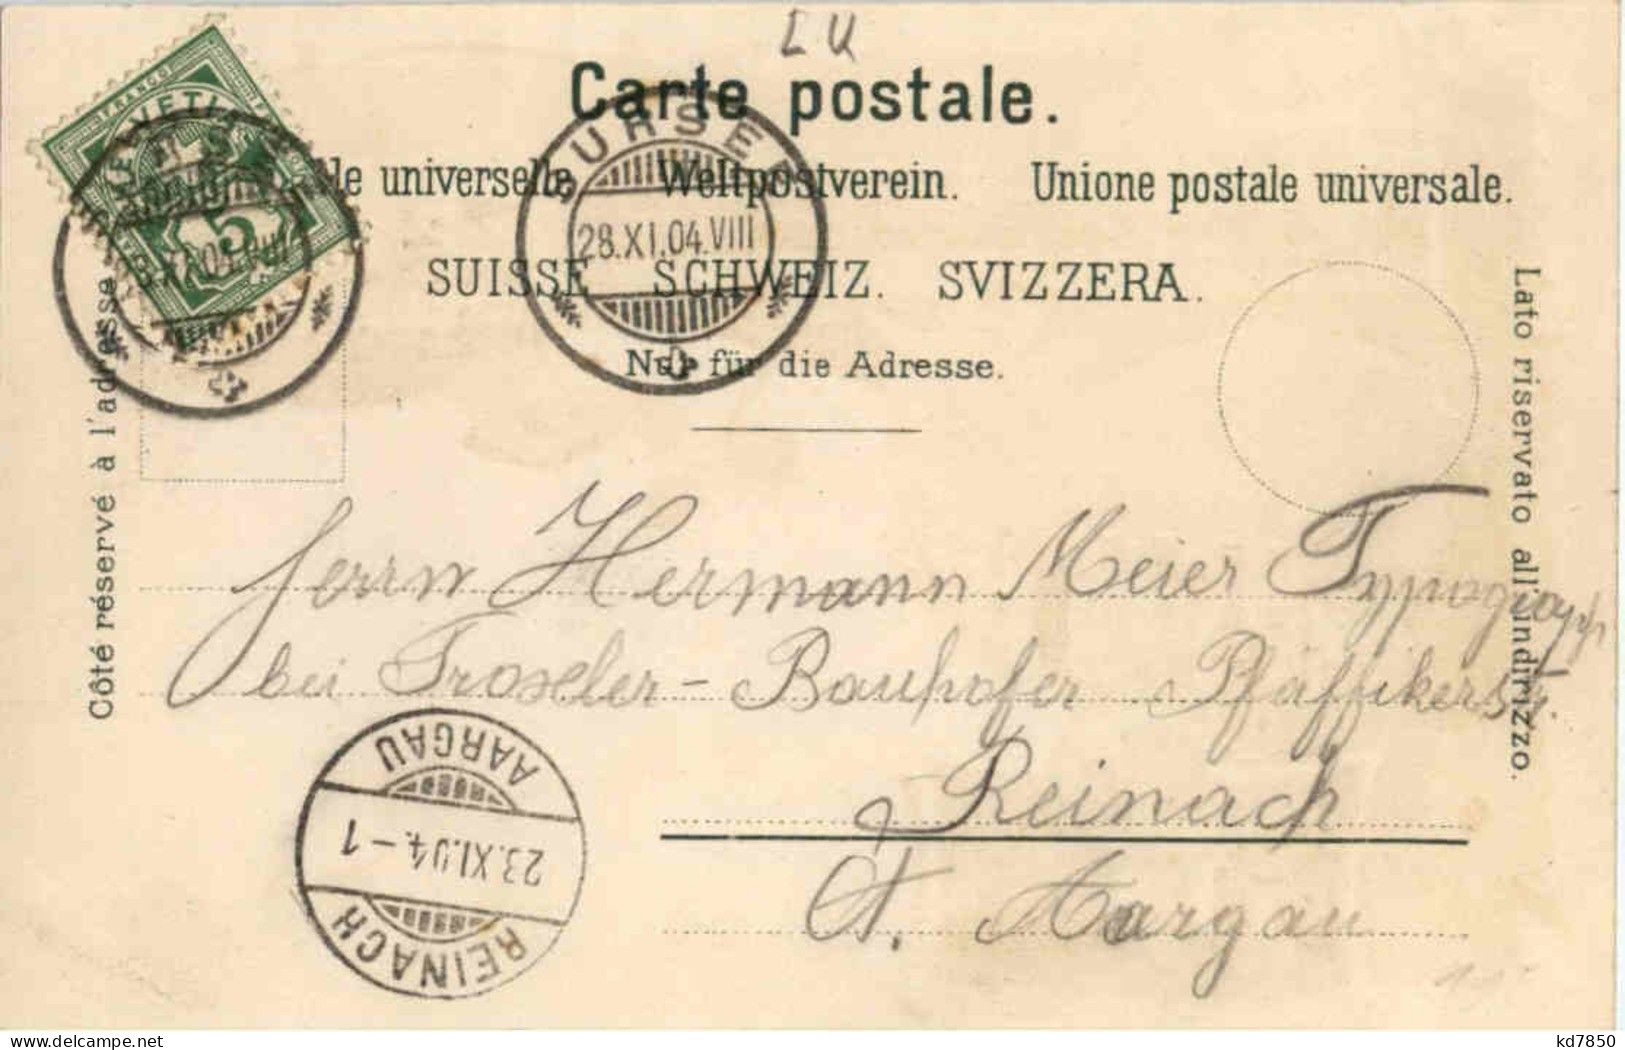 LU
Carte postale.
universelle. Weltpostverein. Unione postale universale.
SUISSE. SCHWEIZ. SVIZZERA.
Nur für die Adresse.
FRANCO
5
SURSEE
28.XI.04.VIII
Côté réservé à l'adresse
Lato riservato all'indirizzo.
Herrn Hermann Meier Typograph
bei Troxler-Bauhofer Pfäffikerstr.
Reinach
Kt. Aargau
REINACH
23.XI.04.-1
AARGAU
kd7850